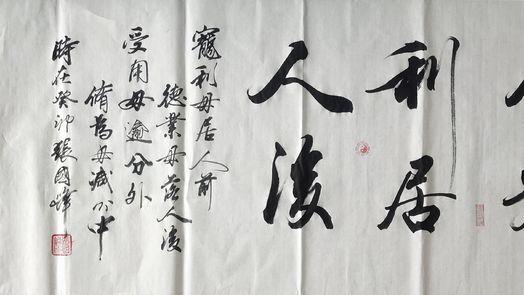 利居
人後
寵利毋居人前
德業毋落人後
受用毋逾分外
脩為毋減分中
時在癸卯張國峰